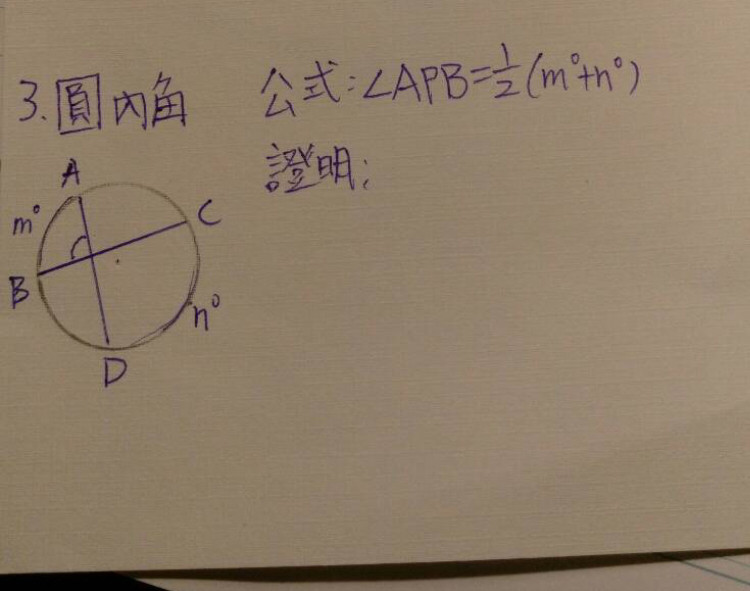 3. 圓內角
公式:∠APB=½(m°+n°)
證明:
A
m°
C
B
n°
D